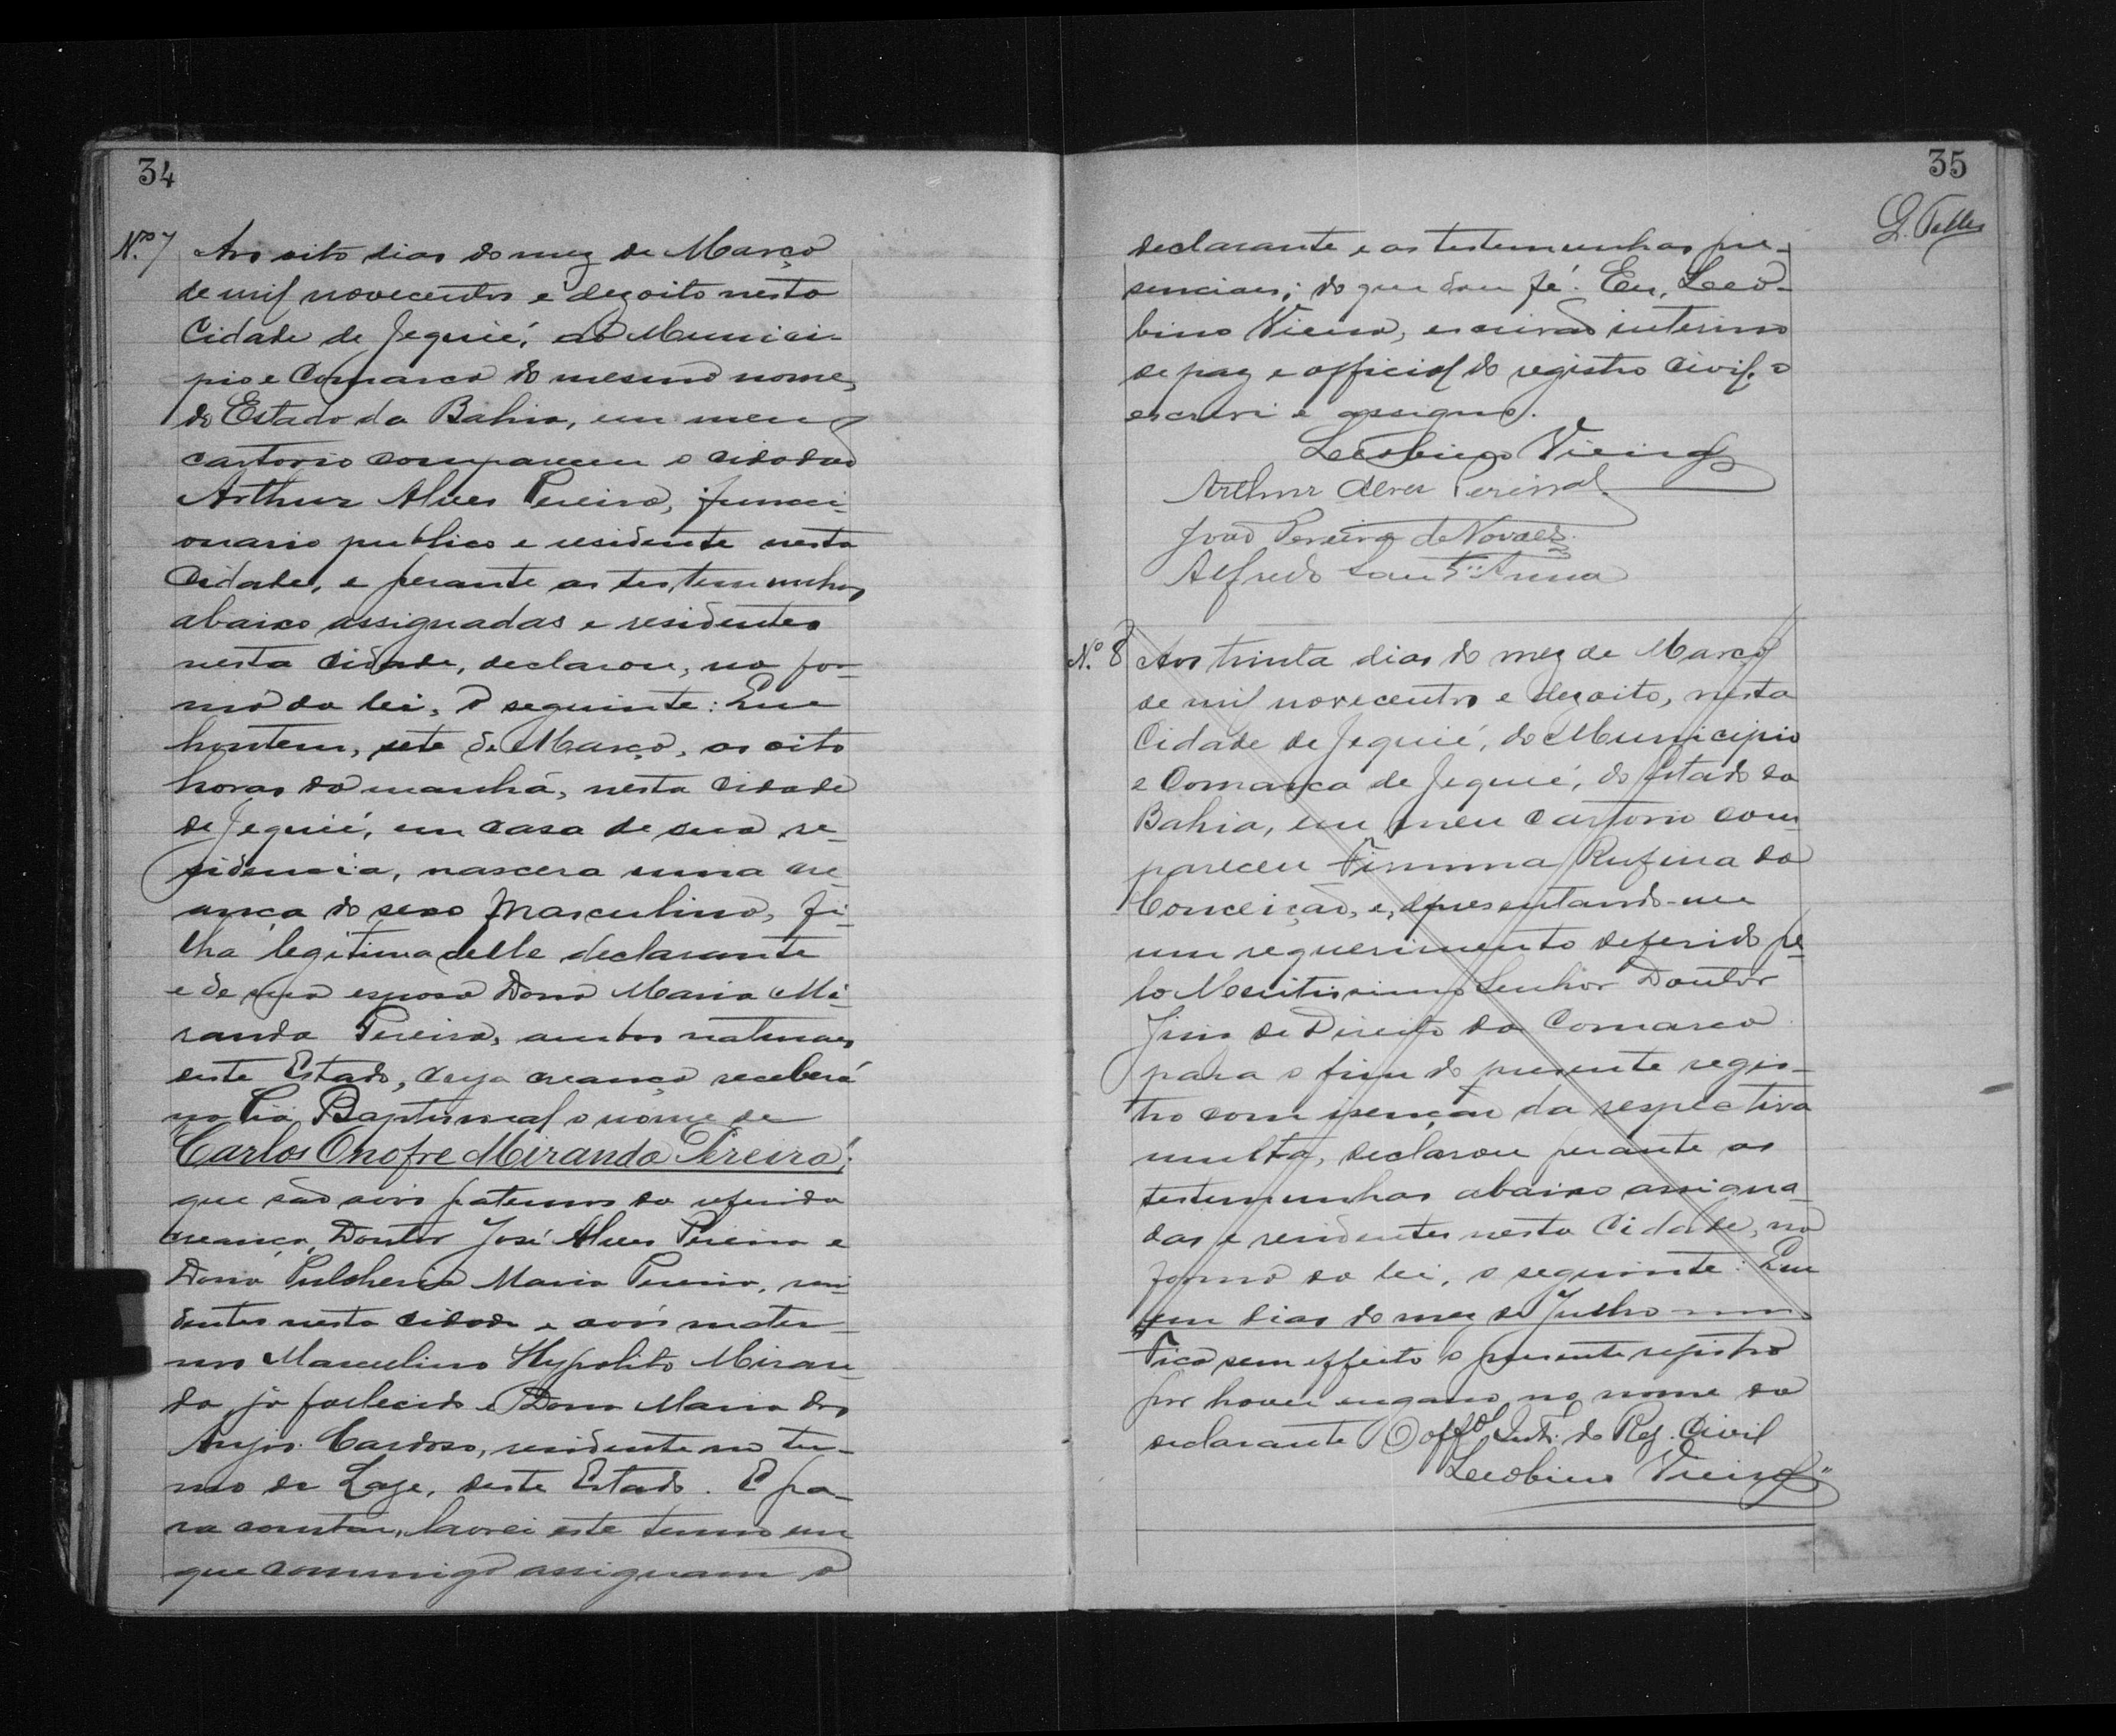 34
Nº 7 Aos oito dias do mez de Março
de mil novecentos e dezoito nesta
Cidade de Jequié, do Munici-
pio e Comarca do mesmo nome,
do Estado da Bahia, em meu
cartorio compareceu o cidadão
Arthur Alves Pereira, funcci-
onario publico e residente nesta
Cidade, e perante as testemunhas
abaixo assignadas e residentes
nesta Cidade, declarou, na for-
ma da lei, o seguinte: Que
hontem, sete de Março, as oito
horas da manhã, nesta Cidade
de Jequié, em casa de sua re-
sidencia, nascera uma cre-
ança do sexo masculino, fi-
lha legitima delle declarante
e de sua esposa Dona Maria Mi-
randa Pereira, ambos naturaes
deste Estado, cuja creança receberá
na Pia Baptismal o nome de
Carlos Onofre Miranda Pereira;
que são avós paternos da referida
creança, Doutor José Alves Pereira e
Dona Pulcheria Maria Pereira, resi-
dentes nesta cidade e avós mater-
nos Marcelino Hypolito Miran-
da já fallecido e Dona Maria dos
Anjos Cardoso, residente no ter-
mo de Lage, deste Estado. E pa-
ra constar, lavrei este termo em
que commigo assignam o
35
G. Telles
declarante e as testemunhas pre-
senciaes; do que dou fé. Eu, Leo-
bino Vieira, escrivão interino
de paz e official do registro Civil, o
escrevi e assigno.
Leobino Vieira
Arthur Alves Pereira
João Pereira de Novaes
Alfredo Sant'Anna
Nº 8 Aos trinta dias do mez de Março
de mil novecentos e dezoito, nesta
Cidade de Jequié, do Municipio
e Comarca de Jequié, do Estado da
Bahia, em meu cartorio com-
pareceu Firmina Rufina da
Conceição, e, apresentando-me
um requerimento deferido pe-
lo Meritissimo Senhor Doutor
Juis de Direito da Comarca
para o fim do presente regis-
tro com isenção da respectiva
multa, declarou perante as
testemunhas abaixo assigna-
das e residentes nesta Cidade, na
forma da lei, o seguinte: Que
em dias do mez de Julho
Fica sem effeito o presente registro
por haver engano no nome da
declarante O offal. Int. do Reg. Civil
Leobino Vieira